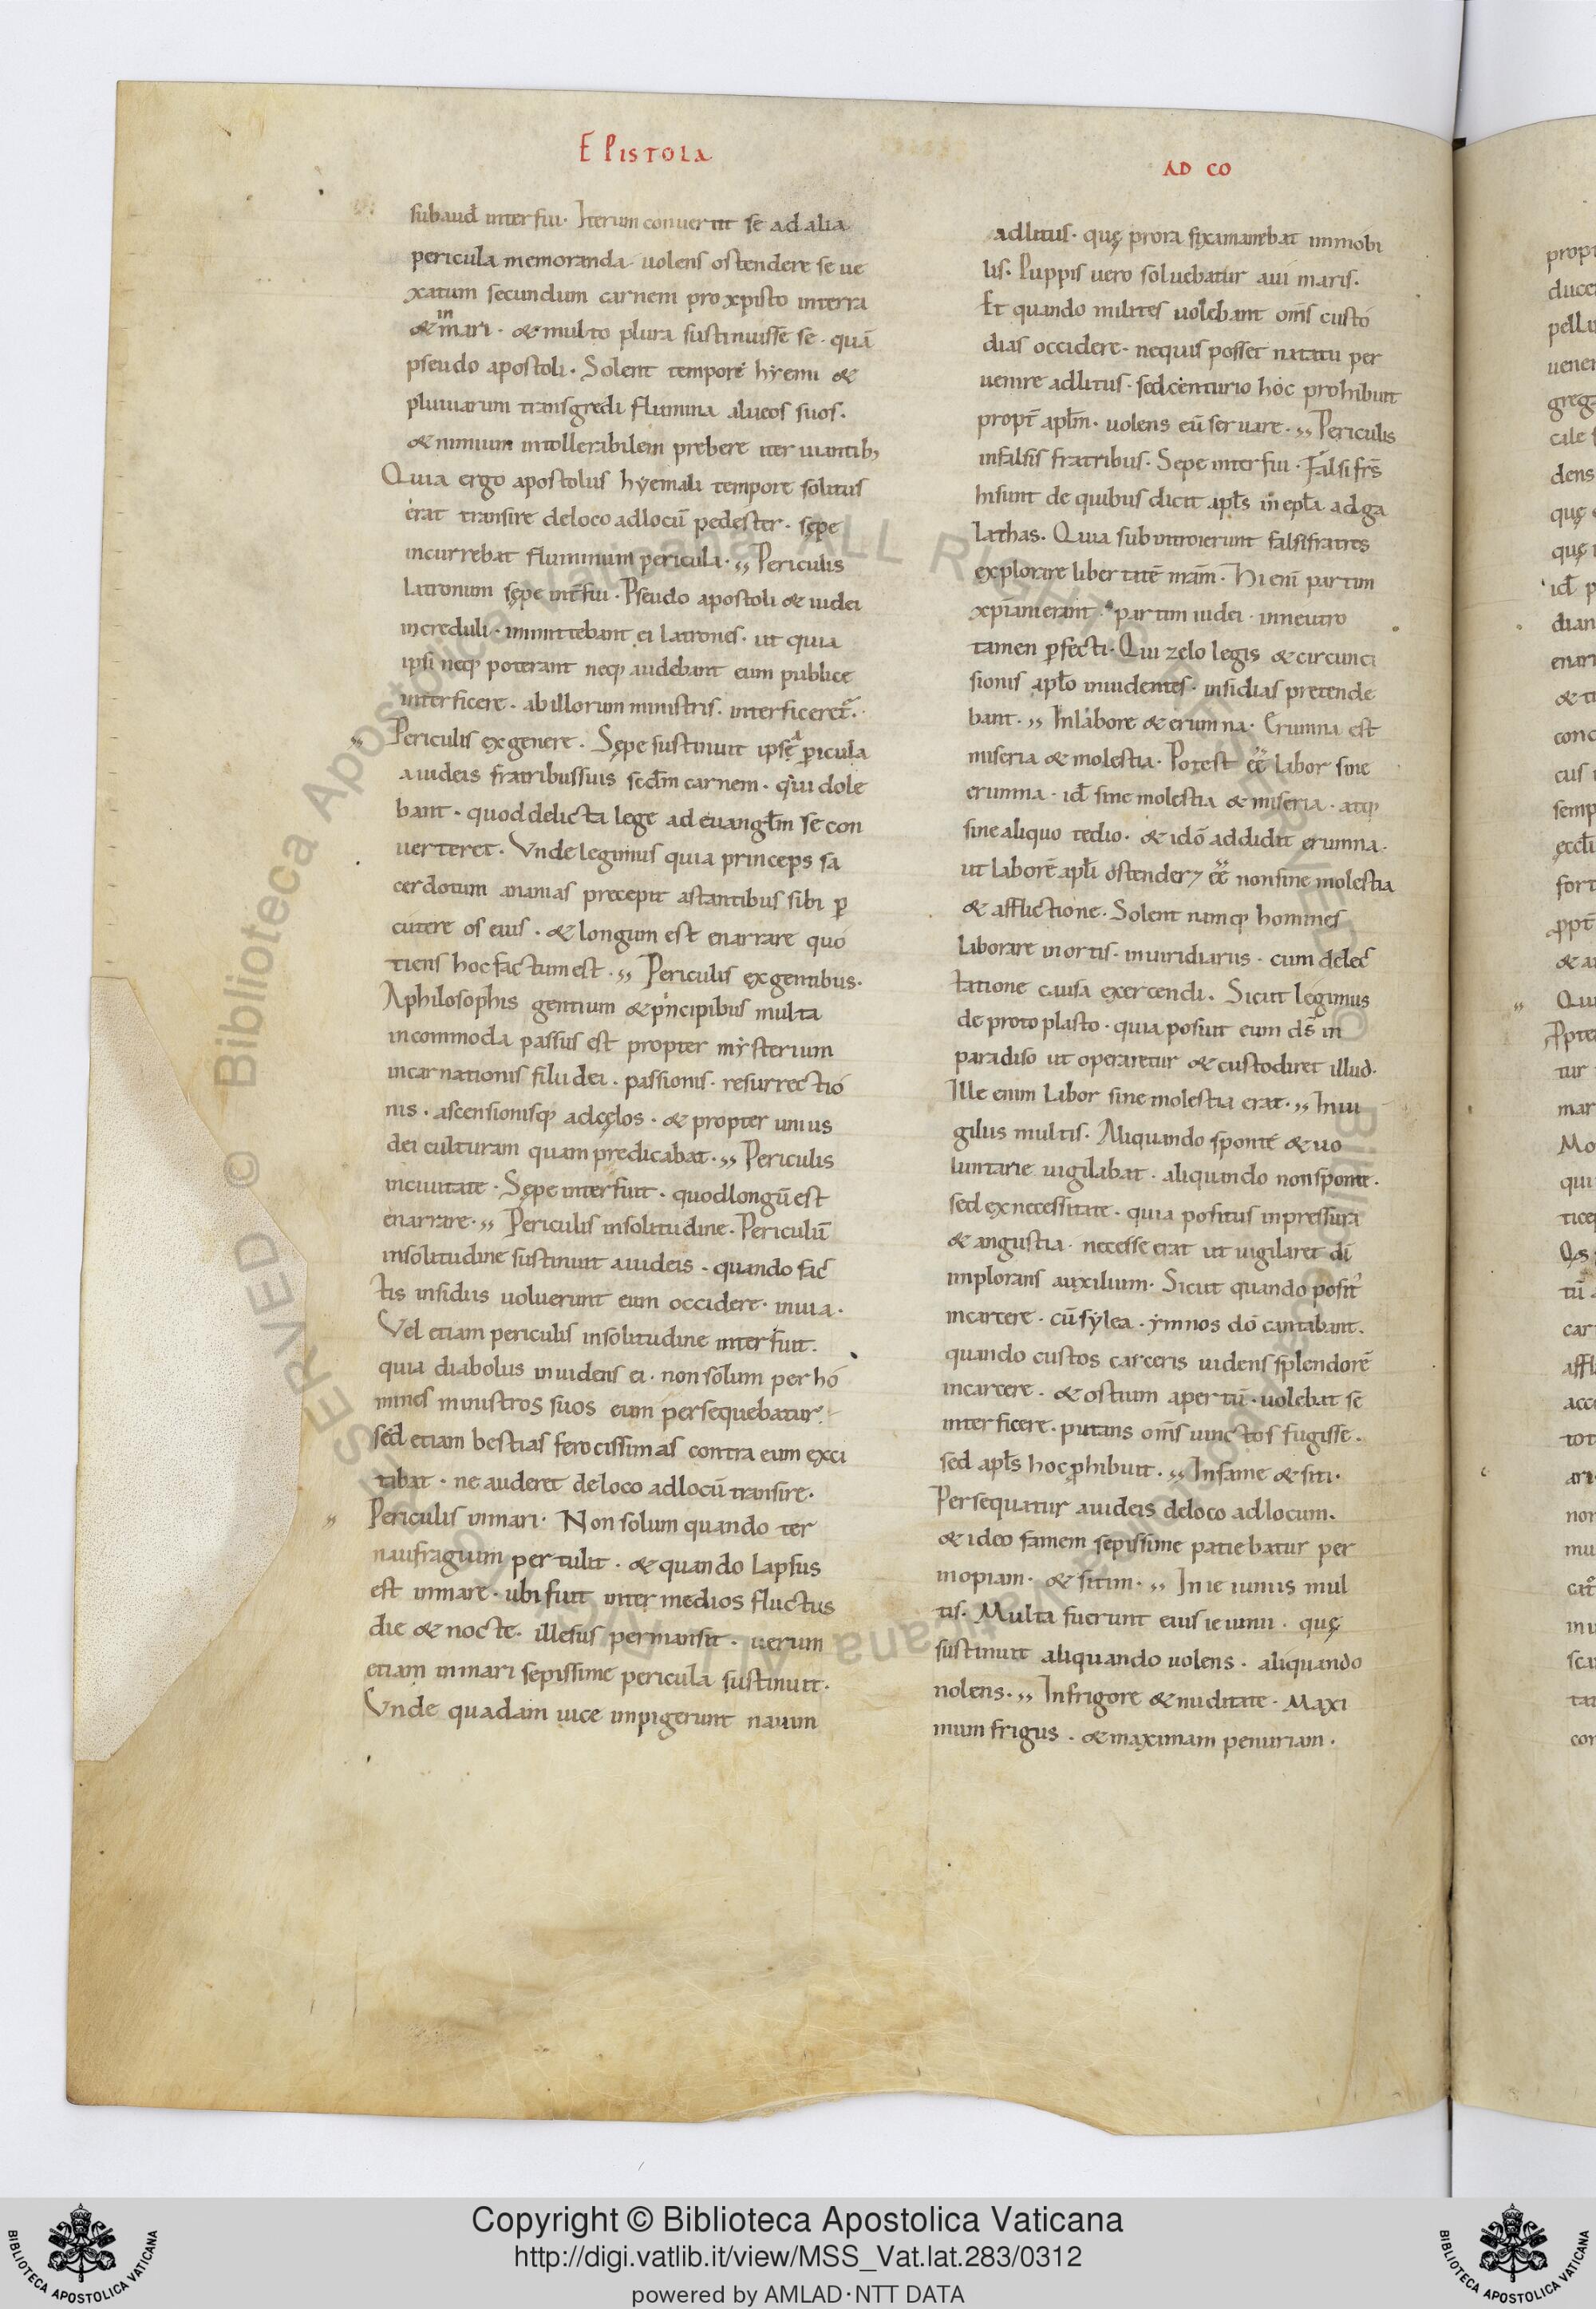 EPISTOLA
subaud̄ interfui. Iterum conuertit se ad alia
pericula memoranda uolens ostendere se ue
xatum secundum carnem pro xpisto interra
& in mari. & multo plura sustinuisse se. quā
pseudo apostoli. Solent tempore hyemi &
pluuiarum transgredi flumina alueos suos.
& nimium intollerabilem prebere iter uiantib;
Quia ergo apostolus hyemali tempore solitus
erat transire deloco adlocū pedester. sępe
incurrebat fluminum pericula. ,, Periculis
latronum sępe int̄fui. Pseudo apostoli & iudei
increduli. inmittebant ei latrones. ut quia
ipsi neq; poterant neq; audebant eum publice
interficere. abillorum ministris. interficeret̄.
,, Periculis exgenere. Sępe sustinuit ipse ꝑicula
aiudeis fratribussuis sedm̄ carnem. qui dole
bant. quod delicta lege ad euanglm̄ se con
uerteret. Vnde legimus quia princeps sa
cerdotum ananias precepit astantibus sibi ꝑ
cutere os eius. & longum est enarrare quo
tiens hoc factum est. ,, Periculis exgentibus.
Aphilosophis gentium & principibus multa
incommoda passus est propter mysterium
incarnationis filii dei. passionis. resurrectio
nis. ascensionisq; adcęlos. & propter unius
dei culturam quam predicabat. ,, Periculis
inciuitate. Sępe interfuit. quodlongū est
enarrare. ,, Periculis insolitudine. Periculū
insolitudine sustinuit aiudeis. quando fac
tis insidiis uoluerunt eum occidere. inuia.
Vel etiam periculis insolitudine interfuit.
quia diabolus inuidens ei. non solum per ho
mines ministros suos eum persequebatur.
sed etiam bestias ferocissimas contra eum exci
tabat. ne auderet deloco adlocū transire.
,, Periculis inmari. Non solum quando ter
naufragium pertulit. & quando lapsus
est inmare. ubi fuit inter medios fluctus
die & nocte. illesus permansit. uerum
etiam inmari sepissime pericula sustinuit.
Vnde quadam uice impigerunt nauim
AD CO
adlitus. quę prora fixa manebat immobi
lis. Puppis uero soluebatur aui maris.
Et quando milites uolebant om̄s custo
dias occidere. nequis posset natatu per
uenire adlitus. sed centurio hoc prohibuit
propt̄ aplm̄. uolens eū seruare. ,, Periculis
infalsis fratribus. Sepe interfui. Falsi frs̄
hisunt de quibus dicit apls̄ in epla ad ga
lathas. Quia subintroierunt falsifratres
explorare libertatē nrām. Hi eni partim
xpiani erant. partim iudei. inneutro
tamen ꝑfecti. Qui zelo legis & circunci
sionis aplo inuidentes. insidias pretende
bant. ,, Inlabore & erumna. Erumna est
miseria & molestia. Potest ee labor sine
erumna. id sine molestia & miseria. atq;
sine aliquo tedio. & idō addidit erumna.
ut laborē apli ostender& ee non sine molestia
& afflictione. Solent namq; homines
laborare inortis. inuiridiariis. cum delec
tatione causa exercendi. Sicut legimus
de protoplasto. quia posuit eum ds̄ in
paradiso ut operaretur & custodiret illud.
Ille enim labor sine molestia erat. ,, Inui
giliis multis. Aliquando sponte & uo
luntarie uigilabat. aliquando nonsponte.
sed ex necessitate. quia positus inpressura
& angustia. necesse erat ut uigilaret dī
implorans auxilium. Sicut quando posit᾽
incarcere. cū sylea. ymnos dō cantabant.
quando custos carceris uidens splendorē
incarcere. & ostium apertū. uolebat se
interficere. putans om̄s uinctos fugisse.
sed apls̄ hoc ꝓhibuit. ,, Infame & siti.
Persequatur aiudeis deloco adlocum.
& ideo famem sepissime patiebatur per
inopiam. & sitim. ,, Inieiuniis mul
tis. Multa fuerunt eius ieiunii. quę
sustinuit aliquando uolens. aliquando
nolens. ,, Infrigore & nuditate. Maxi
mum frigus. & maximam penuriam.
Copyright © Biblioteca Apostolica Vaticana
http://digi.vatlib.it/view/MSS_Vat.lat.283/0312
powered by AMLAD·NTT DATA
BIBLIOTECA APOSTOLICA VATICANA
BIBLIOTECA APOSTOLICA VATICANA